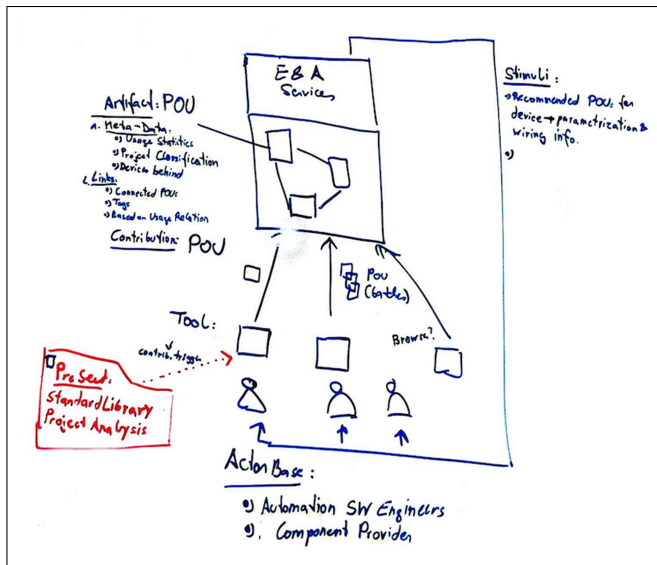 E & A
Services
Stimuli:
Recommended POUs for
device → parametrization &
wiring info.
Artifact: POU
1. Meta-Data:
Usage Statistics
Project Classification
Devices behind
2. Links:
Connected POUs
Tags
Based on Usage Relation
Contribution: POU
POU
Tool:
contrib. trigger
Browse?
Pro Seed:
Standard Library
Project Analysis
Actor Base:
Automation SW Engineers
Component Provider